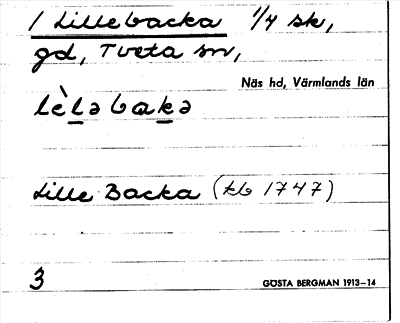 1 Lillebacka 1/4 sk,
gd, Tveta sn,
Näs hd, Värmlands län
lèlə bakə
Lille Backa (kb 1747)
3
GÖSTA BERGMAN 1913–14